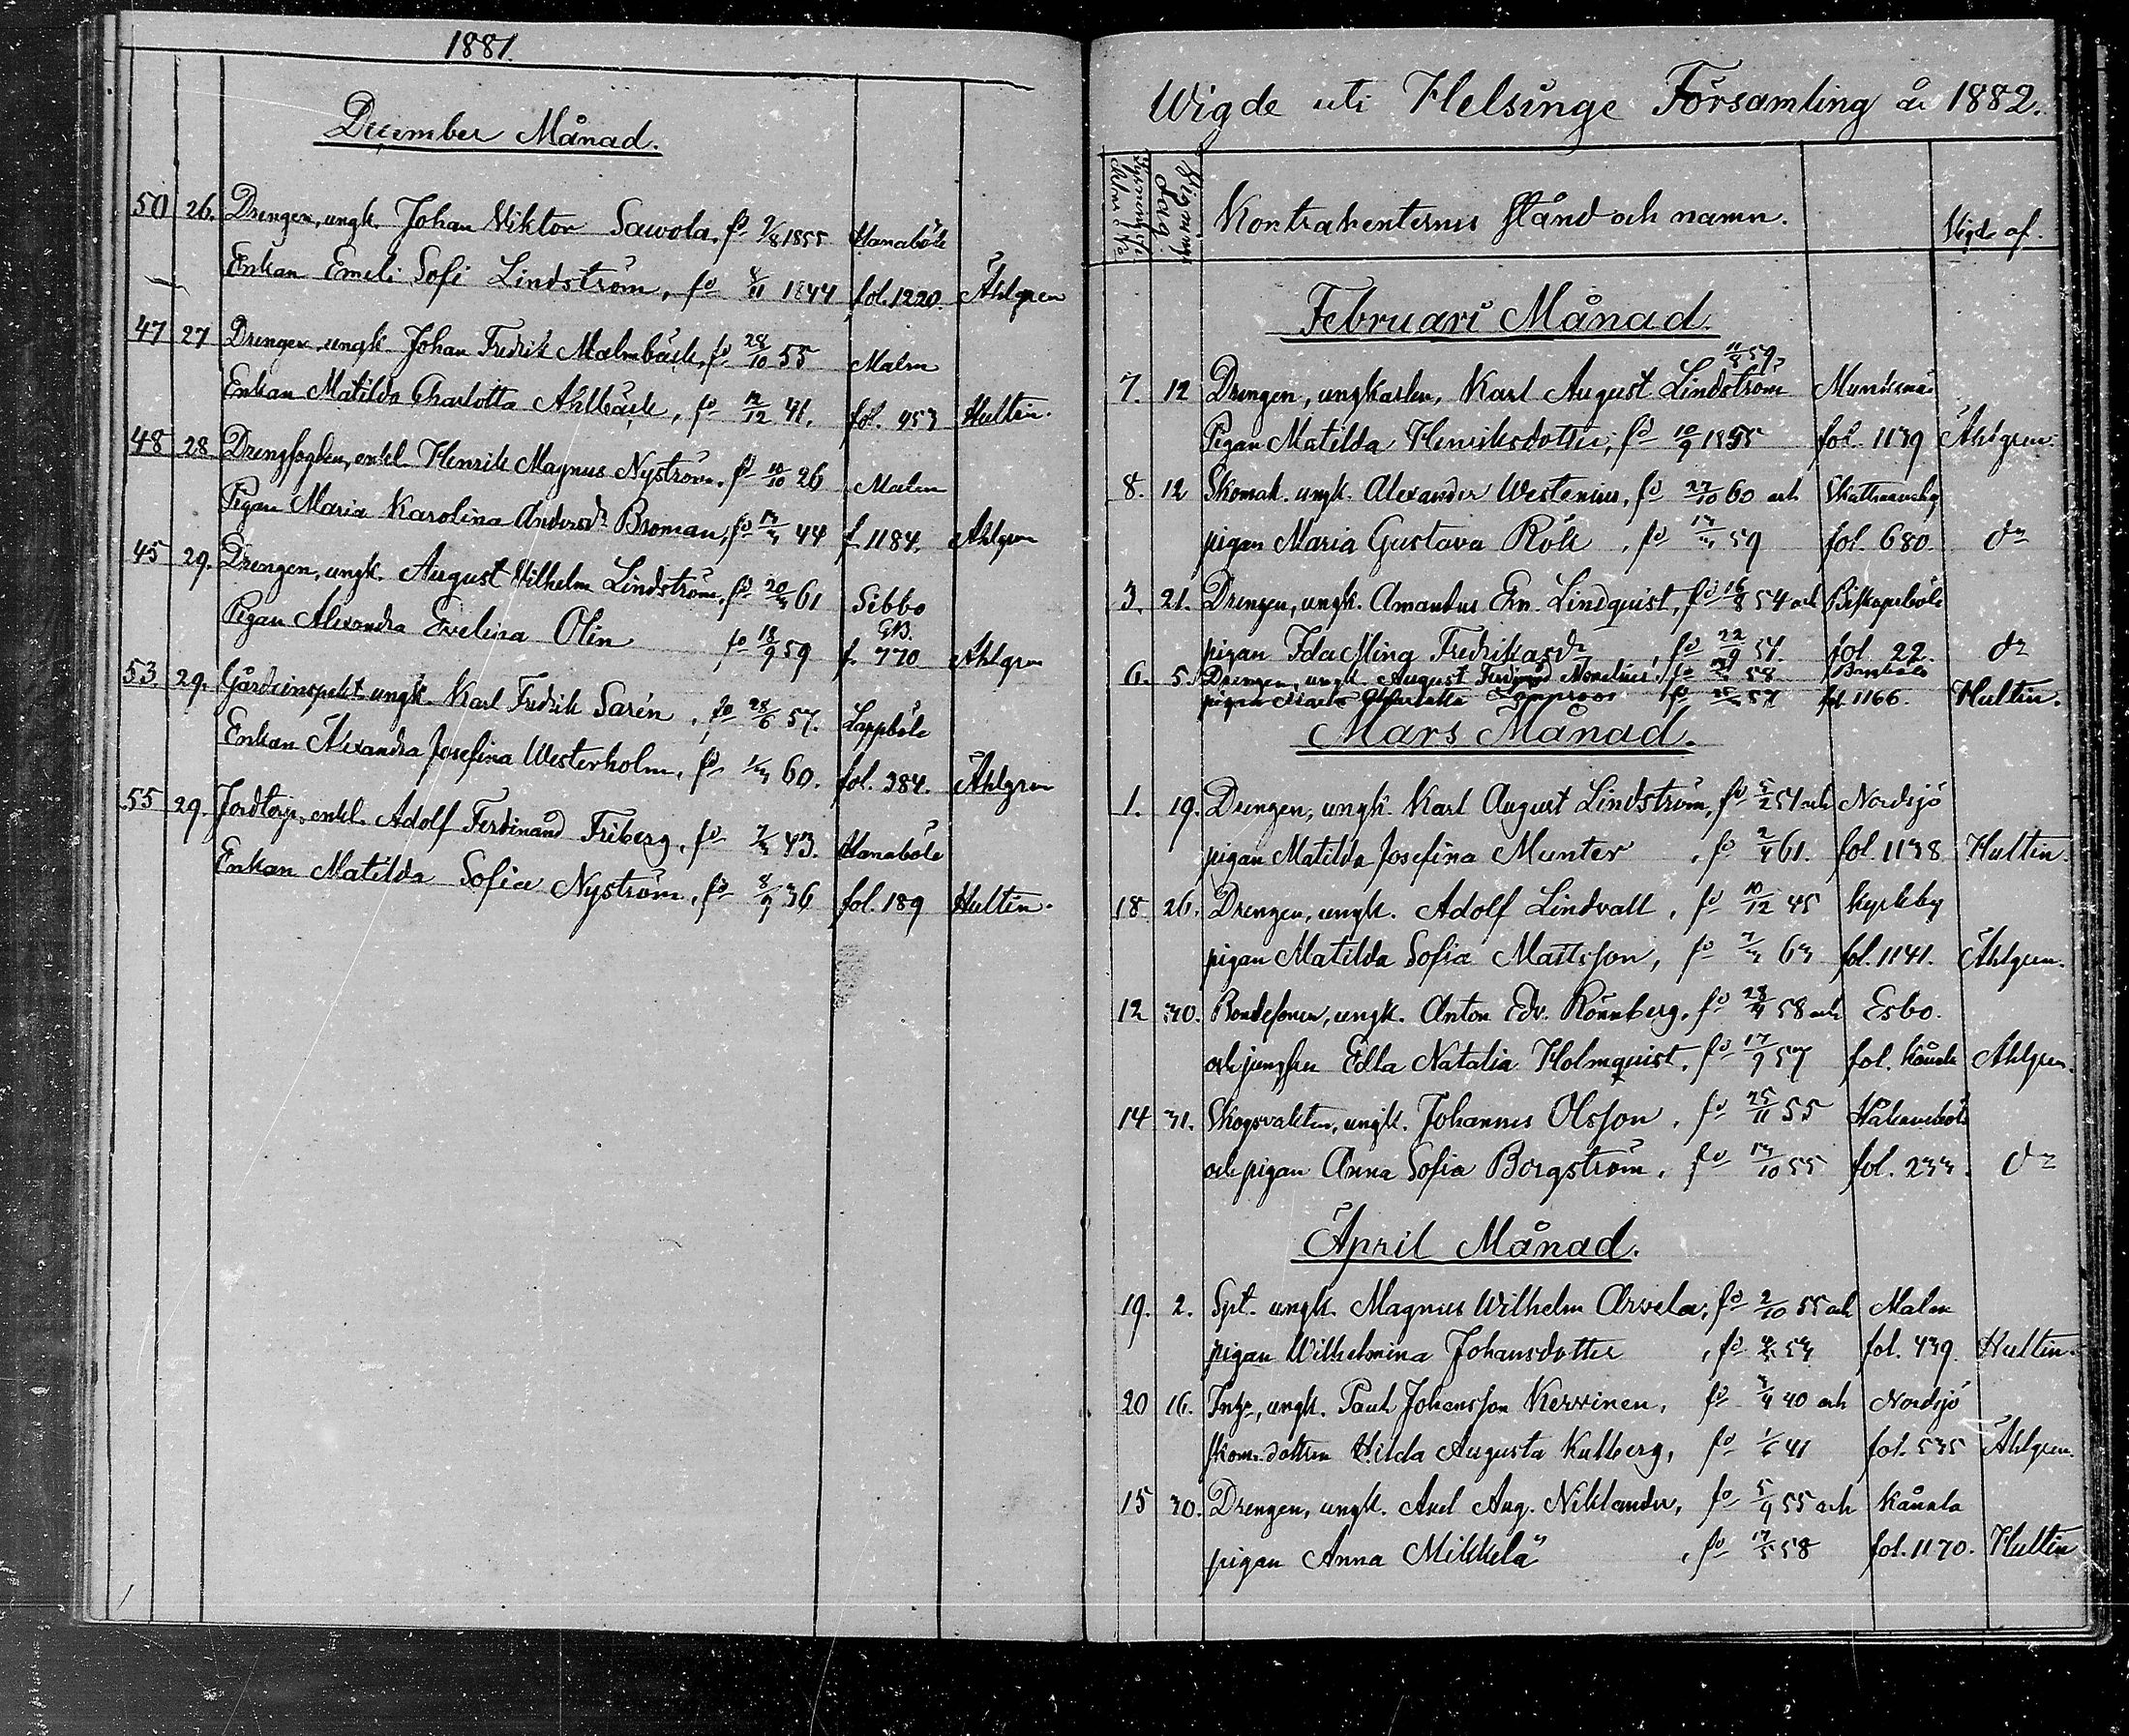 1881.
December Månad.
50 26. Drengen, ungk. Johan Viktor Sawola, fd 9/8 1855 Hanaböle
Enkan Emeli Sofi Lindström, fd 8/11 1844 fol. 1220. Åhlgren
47 27 Drengen, ungk. Johan Fredrik Malmbäck, fd 28/10 55 Malm
Enkan Matilda Charlotta Ahlbäck, fd 12/12 41. fol. 453 Hultin.
48 28. Drengfogden, enkl. Henrik Magnus Nyström, fd 10/10 26 Malm
Pigan Maria Karolina Andersdr Broman, fd 44 f. 1184. Ahlgren
45 29. Drengen, ungk. August Vilhelm Lindström, fd 20/3 61 Sibbo
GB.
Pigan Alexandra Evelina Olin fd 18/9 59 f. 770 Ahlgren
53. 29. Gårdsinspekt. ungk. Karl Fredrik Sarén, fd 28/6 57. Lappböle
Enkan Alexandra Josefina Westerholm, fd 60. fol. 384. Åhlgren
55 29. Jordtorp. enkl. Adolf Ferdinand Friberg, fd 7/3 43. Hanaböle
Enkan Matilda Sofia Nyström, fd 8/9 36 fol. 189 Hultin.
Wigde uti Helsinge Församling år 1882.
Kontrahenternes stånd och namn. Vigde af.
Februari Månad.
11/8 59.
7. 12 Drengen, ungkarlen, Karl August Lindström Munksnäs
Pigan Matilda Henriksdotter, fd 10/9 1855 fol. 1139 Åhlgren.
8. 12 Skomak. ungk. Alexander Westenius, fd 27/10 60 och
pigan Maria Gustava Rök, fd 59 fol. 680. do
3. 21. Drengen, ungk. Amandus Em. Lindquist, fd 16/8 54 och Biskopsböle
pigan Ida Mina Fredriksdr, fd 22/9 51. fol. 22. do
6. 5. Drengen, ungk. August Ferdinand fd 58
pigan Charlotta fd 57 fol. 1166. Hultin.
Mars Månad.
1. 19. Drengen, ungk. Karl August Lindström, fd 5/2 51 och Nordsjö
pigan Matilda Josefina Munter, fd 2/4 61. fol. 1138 Hultin.
18. 26. Drengen, ungk. Adolf Lindvall, fd 10/12 45 Kyrkby
pigan Matilda Sofia Mattsson, fd 7/3 63 fol. 1141. Åhlgren.
12 30. Bondesonen, ungk. Anton Edv. Rönnberg, fd 28/4 58 och Esbo.
och jungfru Edla Natalia Holmquist, fd 17/9 57 fol. Ahlgren.
14 31. Skogsvakten, ungk. Johannes Olsson, fd 25/11 55 Håkansböle
och pigan Anna Sofia Borgström, fd 13/10 55 fol. 233. do
April Månad.
19. 2. Spt. ungk. Magnus Wilhelm Arvela, fd 2/10 55 och Malm
pigan Wilhelmina Johansdotter, fd 53 fol. 439. Hultin.
20 16. Inhs., ungk. Paul Johansson Kervinen, fd 3/4 40 och Nordsjö
skom. dottren Hilda Augusta Kullberg, fd 1/6 41 fol. 535 Åhlgren.
15 30. Drengen, ungk. Axel Aug. Niklander, fd 5/9 55 och Kånala
pigan Anna Mikkelä, fd 17/5 58 fol. 1170. Hultin